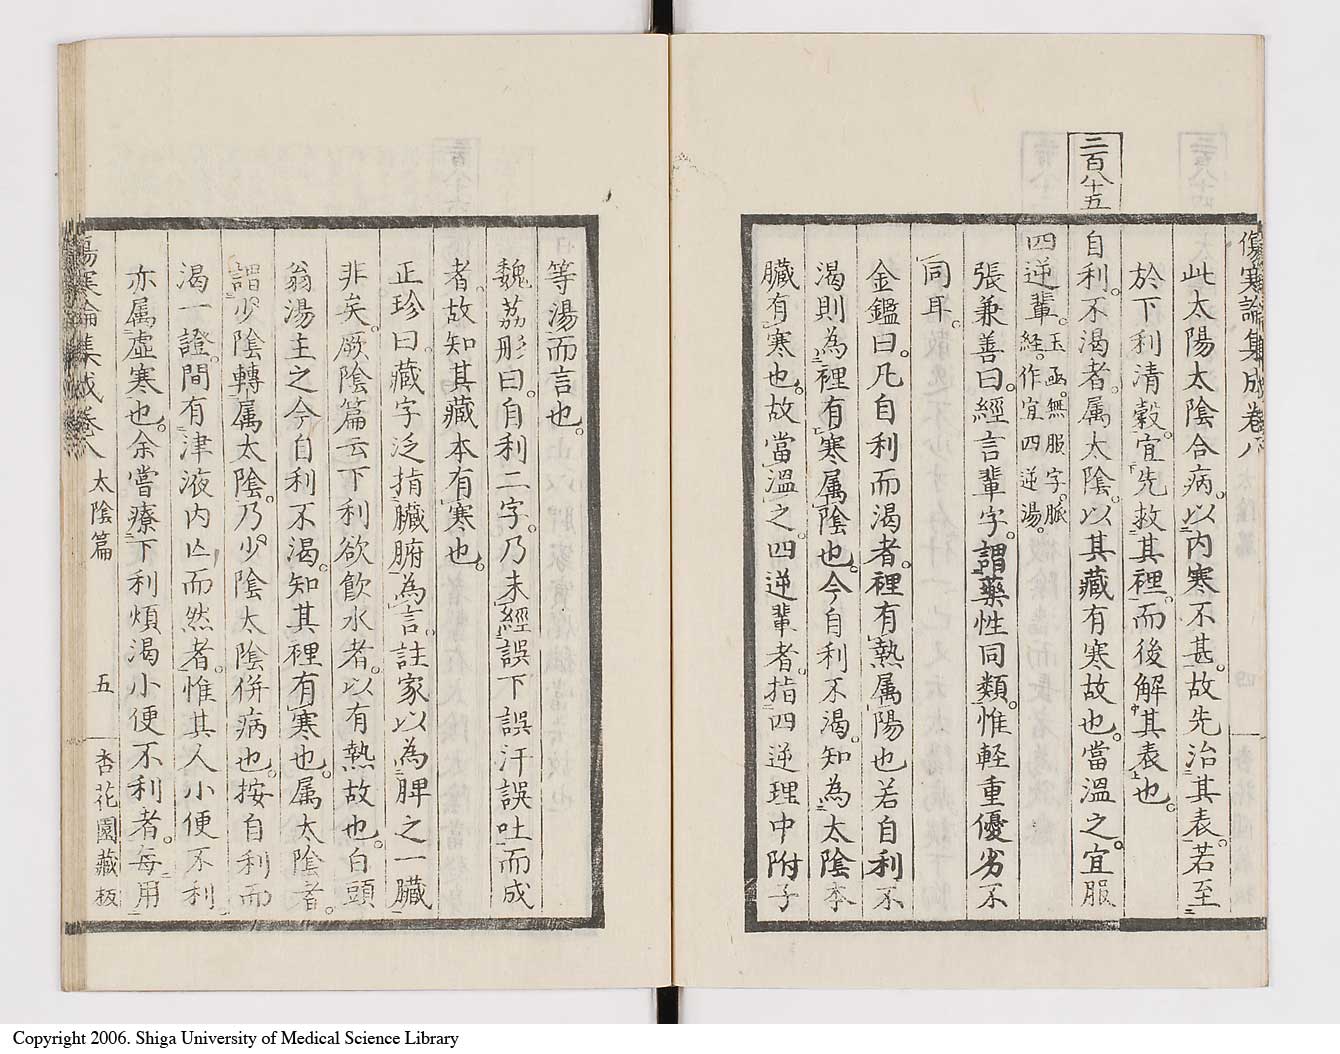 傷寒論集成卷八
此太陽太陰合病。以内寒不甚。故先治其表。若至
於下利清穀。宜先救其裡。而後解其表也。
三百八十五
自利。不渴者。属太陰。以其藏有寒故也。當溫之。宜服
四逆輩。玉函。無服字。脈經。作宜四逆湯。
張兼善曰。經言輩字。謂藥性同類。惟軽重優劣不
同耳。
金鑑曰。凡自利而渴者。裡有熱属陽也若自利不
渴則為裡有寒属陰也。今自利不渴。知為太陰本
臟有寒也。故當溫之。四逆輩者。指四逆理中附子
等湯而言也。
魏荔彤曰。自利二字。乃未經誤下誤汗誤吐而成
者。故知其藏本有寒也。
正珍曰。藏字泛指臟腑為言。註家以為脾之一臟
非矣。厥陰篇云下利欲飲水者。以有熱故也。白頭
翁湯主之今自利不渴。知其裡有寒也。属太陰者。
謂少陰轉属太陰。乃少陰太陰併病也。按自利而
渴一證。間有津液内亾而然者。惟其人小便不利。
亦属虛寒也。余嘗療下利煩渴小便不利者。每用
傷寒論集成卷八 太陰篇 五 杏花園藏板
Copyright 2006. Shiga University of Medical Science Library